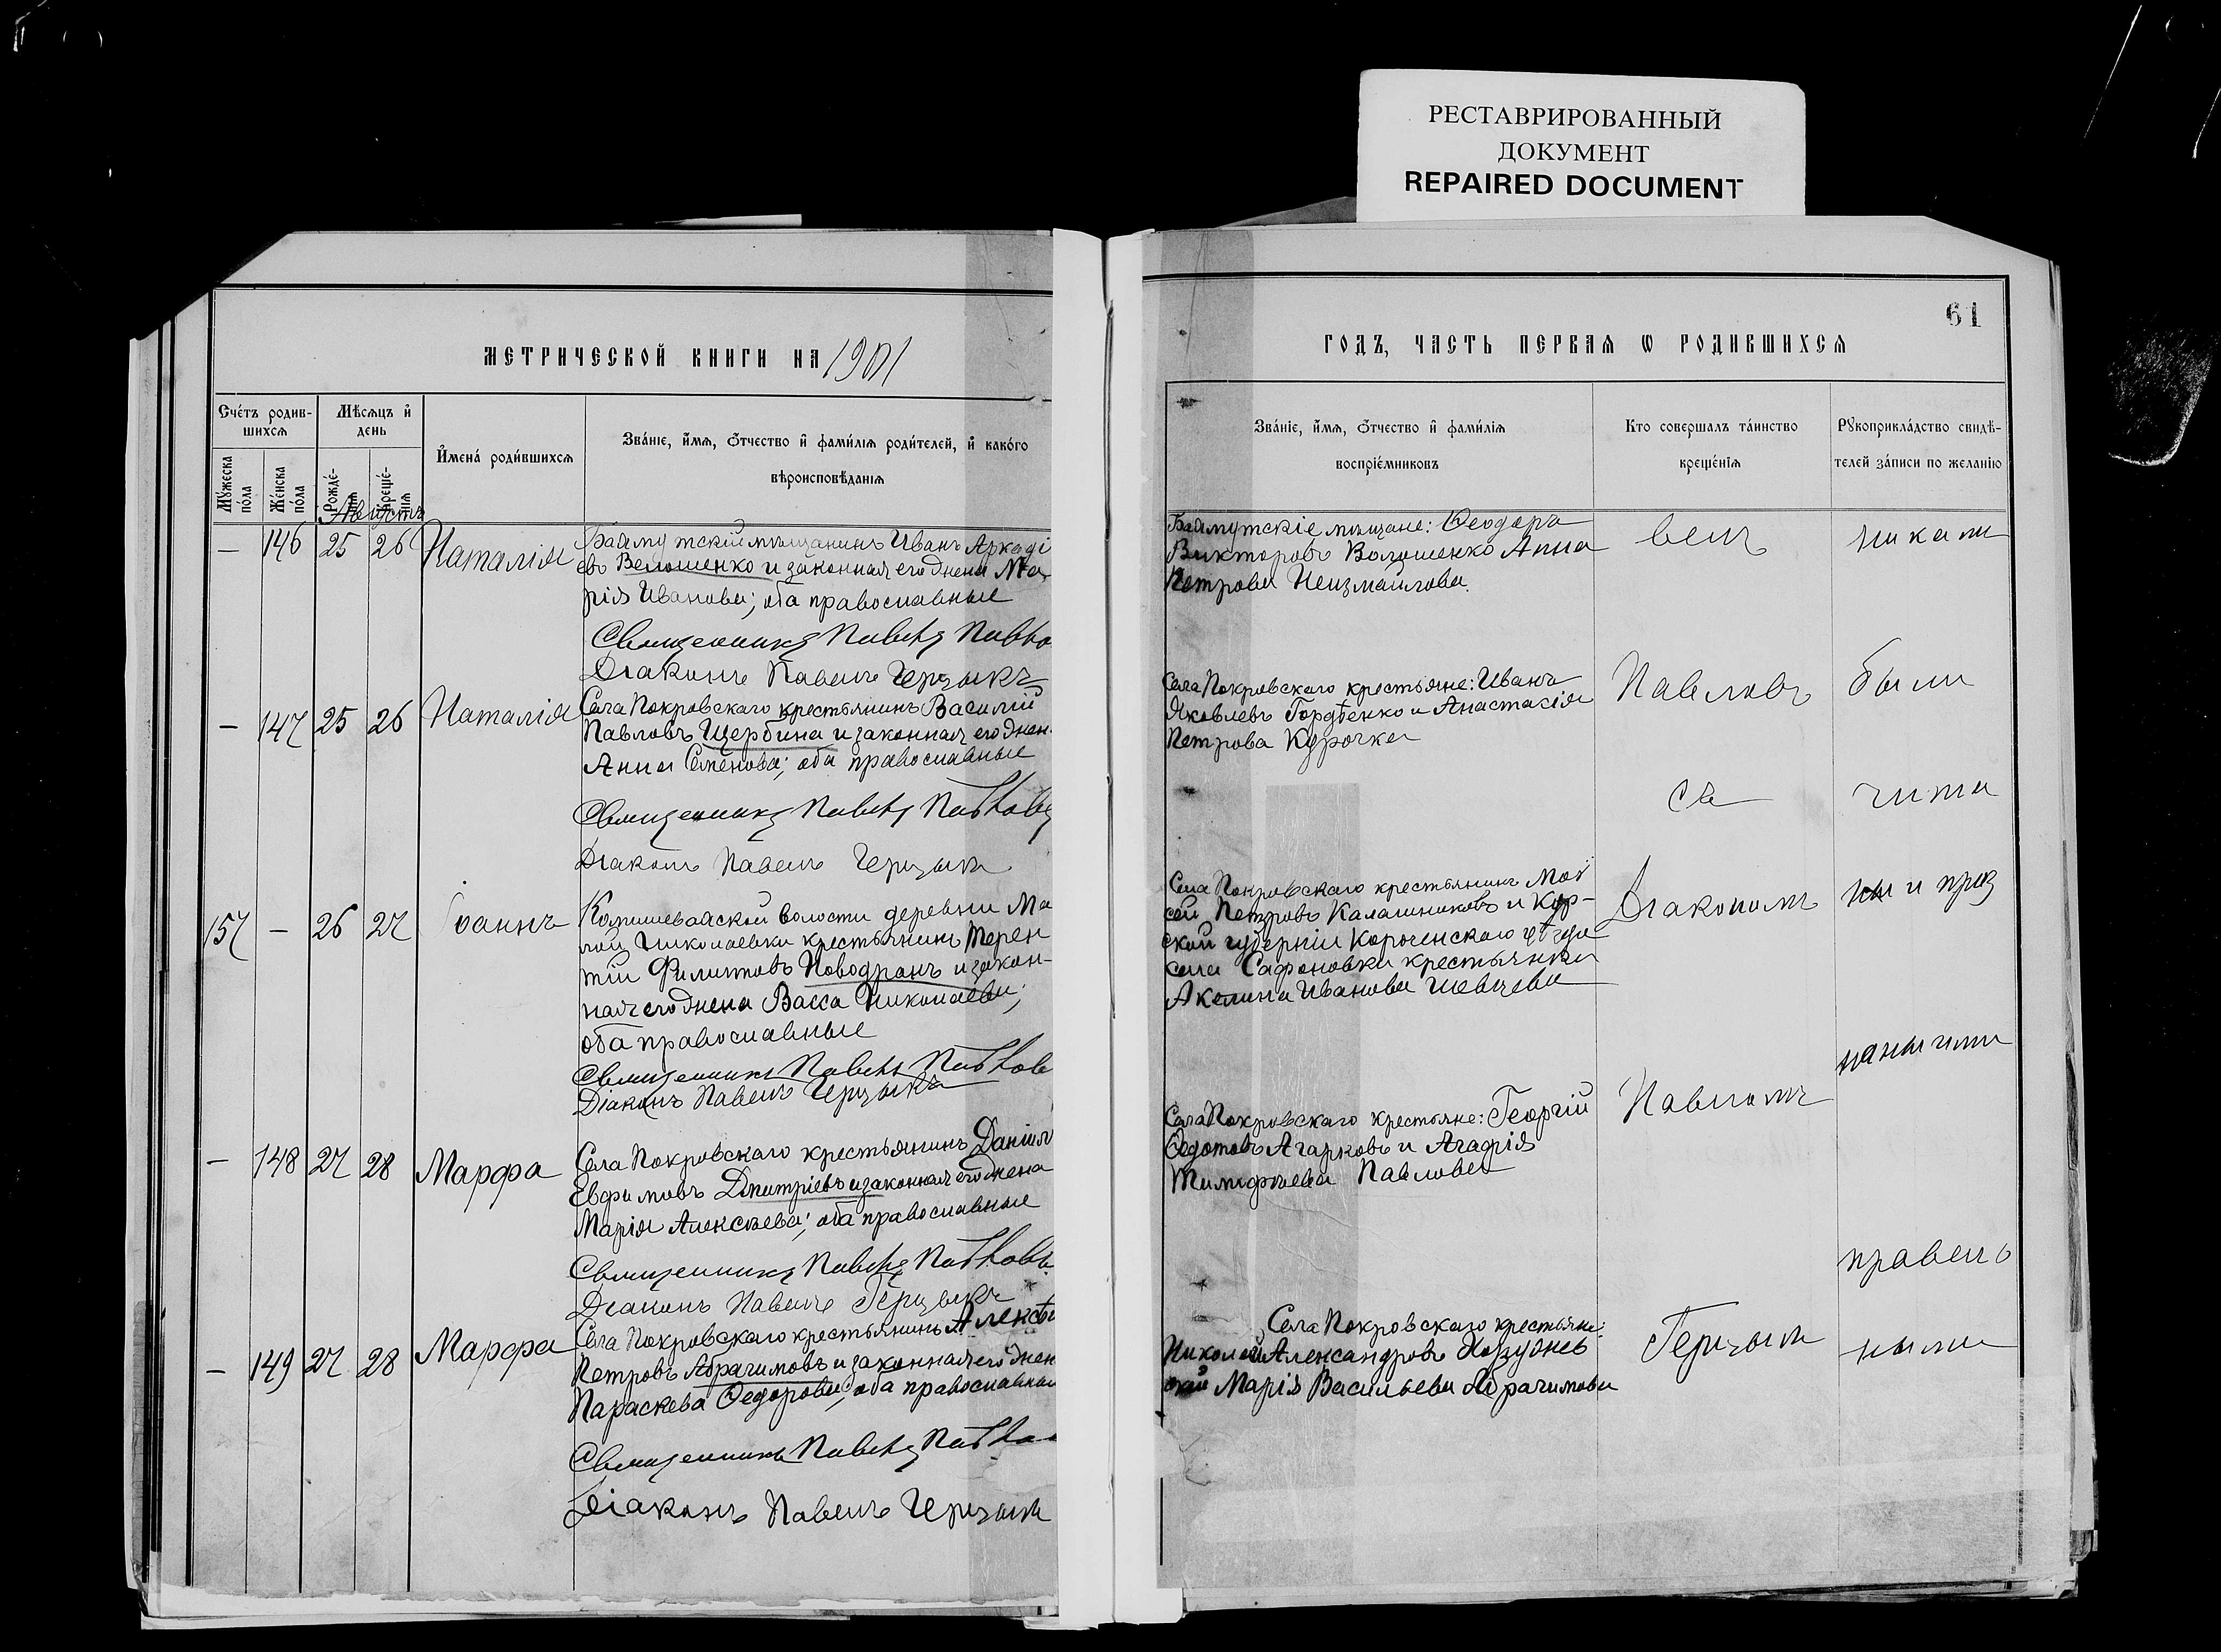 РЕСТАВРИРОВАННЫЙ
ДОКУМЕНТ
REPAIRED DOCUMENT
61
МЕТРИЧЕСКОЙ КНИГИ НА 1901
Счетъ родив-
шихся
Мѣсяцъ и
день
Мужеска
пола
Женска
пола
Рожде-
нія
Креще-
нія
Имена родившихся
Званіе, имя, отчество и фамилія родителей, и какого
вѣроисповѣданія
Августъ
— 146 25 26 Наталія
Бахмутскій мѣщанинъ Иванъ Аркаді
евъ Велошенко и законная его жена Ма
рія Иванова; оба православные
Священникъ Павелъ Павло
Діаконъ Павелъ Герцыкъ
— 147 25 26 Наталія
Села Покровскаго крестьянинъ Василій
Павловъ Щербина и законная его жен
Анна Семенова; оба православные
Священникъ Павелъ Павловъ
Діаконъ Павелъ Герцыкъ
157 — 26 27 Іоаннъ
волости деревни Ма
лой Николаевки крестьянинъ Терен
тій Филиповъ Новодранъ и закон-
ная его жена Васса Николаева;
оба православные
Священникъ Павелъ Павлов
Діаконъ Павелъ Герцыкъ
— 148 27 28 Марфа
Села Покровскаго крестьянинъ Даніилъ
Евфимовъ Дмитріевъ и законная его жена
Марія Алексѣева; оба православные
Священникъ Павелъ Павловъ
Діаконъ Павелъ Герцыкъ
— 149 27 28 Марфа
Села Покровскаго крестьянинъ Алексѣй
Петровъ Абрагимовъ и законная его жен
Параскева Ѳедорова; оба православные
Священникъ Павелъ Павло
Діаконъ Павелъ Герцыкъ
ГОДЪ, ЧАСТЬ ПЕРВАЯ Ѡ РОДИВШИХСЯ
Званіе, имя, отчество и фамилія
воспріемниковъ
Кто совершалъ таинство
крещенія
Рукоприкладство свидѣ-
телей записи по желанію
Бахмутскіе мѣщане: Ѳеодоръ
Викторовъ Волошенко Анна
Петрова Неизмайлова.
Села Покровскаго крестьяне: Иванъ
Яковлевъ Гордѣенко и Анастасія
Петрова Курочка
Села Покровскаго крестьянинъ Мої
сей Петровъ Калашниковъ и Кур-
ской губерніи Короченскаго уѣзда
села Сафоновки крестьянка
Акилина Иванова Шевцева
Села Покровскаго крестьяне: Георгій
Ѳедотовъ Агарковъ и Агафія
Тимофеева Павлова
Села Покровскаго крестьяне:
Николай Александровъ
Марія Васильева Абрагимова
Павловъ
съ
Діакономъ
Павломъ
Герцыкъ
никами
были
чита
ны и приз
правель
ными